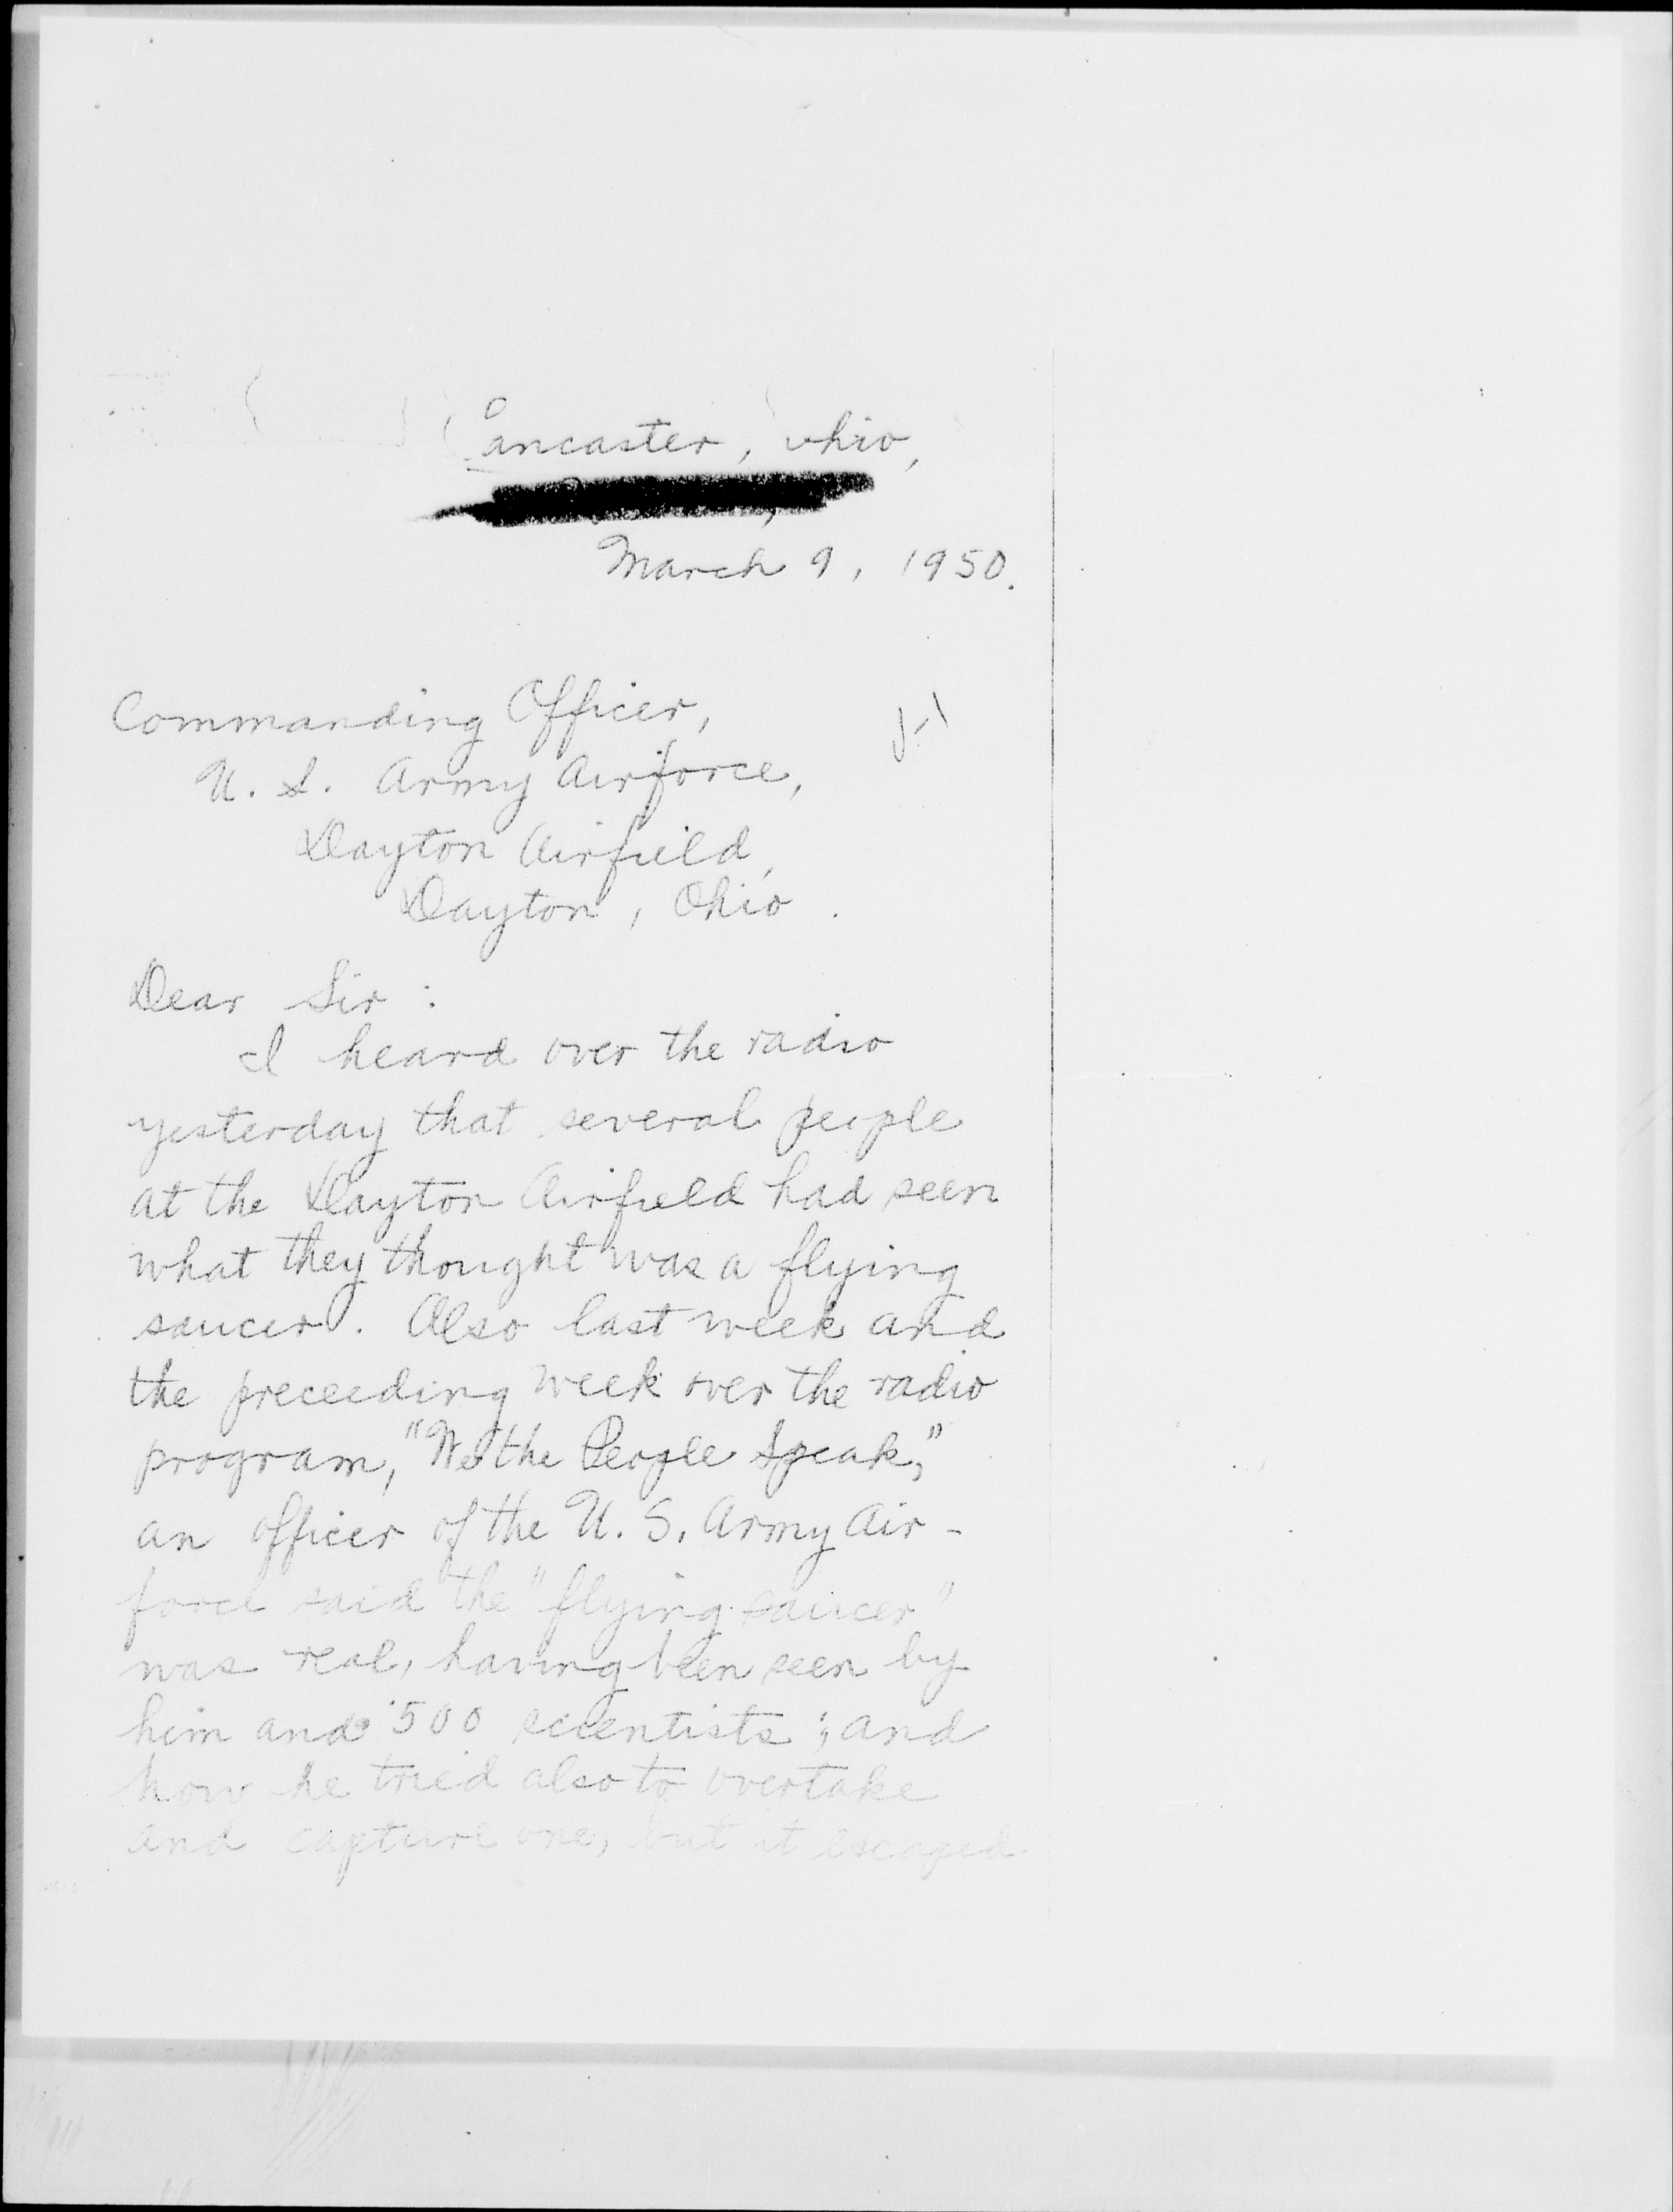 Lancaster, Ohio,
March 9, 1950.
Commanding Officer,
U. S. Army Airforce,
Dayton Airfield,
Dayton, Ohio.
Dear Sir:
I heard over the radio
yesterday that several people
at the Dayton Airfield had seen
what they thought was a flying
saucer. Also last week and
the preceeding week over the radio
program, "We the People Speak,"
an officer of the U. S. Army Air-
force said the "flying saucer"
was real, having been seen by
him and 500 scientists; and
how he tried also to overtake
and capture one, but it escaped